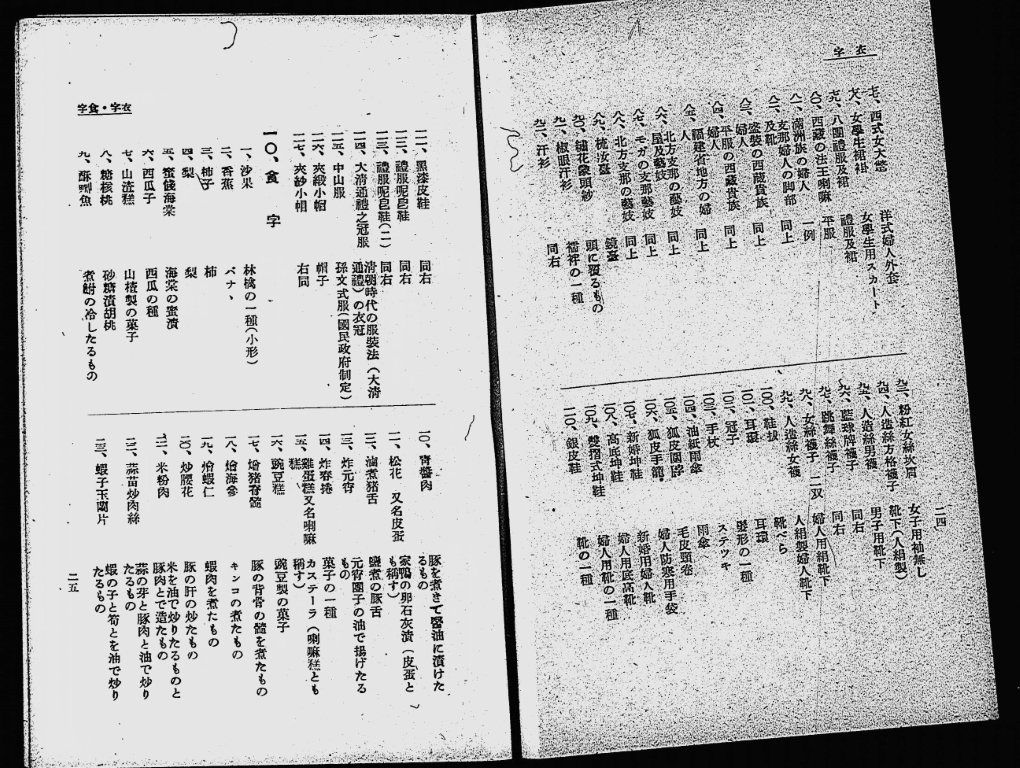 衣字
七七、西式女大氅　洋式婦人外套
七八、女學生裙褂　女學生用スカート
七九、八團禮服及裙　禮服及裙
八〇、西藏の法王喇嘛　平服
八一、滿洲族の婦人　一例
八二、支那婦人の脚部及靴　同上
八三、盛裝の西藏貴族婦人　同上
八四、平服の西藏貴族婦人　同上
八五、福建省地方の婦人　同上
八六、北方支那の藝妓屋及藝妓　同上
八七、モガの支那藝妓　同上
八八、北方支那の藝妓　同上
八九、梳妝臺　鏡臺
九〇、繡花蒙頭紗　頭に覆るもの
九一、椒眼汗衫　襦袢の一種
九二、汗衫　同右
九三、粉紅女絲坎肩　女子用袖無し
九四、人造絲方格襪子　靴下(人絹製)
九五、人造絲男襪　男子用靴下
九六、藍球牌襪子　同右
九七、跳舞絲襪子　同右
九八、女絲襪子　二双　婦人用絹靴下
九九、人造絲女襪　人絹製婦人靴下
一〇〇、鞋拔　靴べら
一〇一、耳環　耳環
一〇二、冠子　髮形の一種
一〇三、手杖　ステツキ
一〇四、油紙雨傘　雨傘
一〇五、狐皮圍脖　毛皮頸卷
一〇六、狐皮手籠　婦人防寒用手袋
一〇七、新婚坤鞋　新婚用婦人靴
一〇八、高底坤鞋　婦人用底高靴
一〇九、雙摺式坤鞋　婦人用靴の一種
一一〇、銀皮鞋　靴の一種
二四
衣字・食字
一一一、黑漆皮鞋　同右
一一二、禮服呢皂鞋　同右
一一三、禮服呢皂鞋(二)　同右
一一四、大淸通禮之冠服　淸朝時代の服裝法(大淸通禮)の衣冠
一一五、中山服　孫文式服(國民政府制定)
一一六、夾緞小帽　帽子
一一七、夾紗小帽　右同
一〇、食字
一、沙果　林檎の一種(小形)
二、香蕉　バナヽ
三、柿子　柿
四、梨　梨
五、蜜餞海棠　海棠の蜜漬
六、西瓜子　西瓜の種
七、山渣糕　山楂製の菓子
八、糖核桃　砂糖漬胡桃
九、酥鯽魚　煮鮒の冷したるもの
一〇、靑醬肉　豚を煮きて醬油に漬けたるもの
一一、松花　又名皮蛋　家鴨の卵石灰漬(皮蛋とも稱す)
一二、滷煮猪舌　鹽煮の豚舌
一三、炸元宵　元宵團子の油で揚げたるもの
一四、炸春捲　菓子の一種
一五、雞蛋糕又名喇嘛糕　カステーラ(喇嘛糕とも稱す)
一六、豌豆糕　豌豆製の菓子
一七、燴猪脊髓　豚の背骨の髓を煮たもの
一八、燴海參　キンコの煮たもの
一九、燴蝦仁　蝦肉を煮たもの
二〇、炒腰花　豚の肝の炒たもの
二一、米粉肉　米を油で炒りたるものと豚肉とで造たもの
二二、蒜苗炒肉絲　蒜の芽と豚肉と油で炒りたるもの
二三、蝦子玉蘭片　蝦の子と筍とを油で炒りたるもの
二五